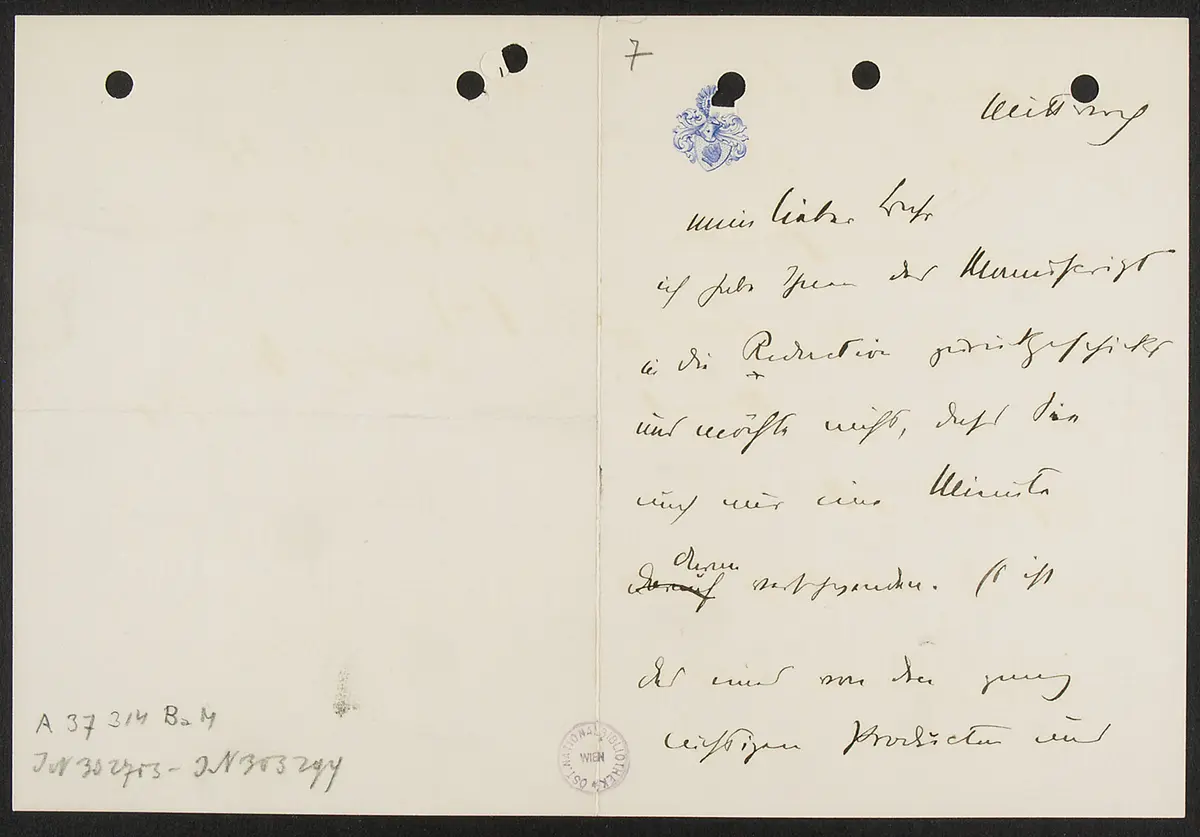 A 37 314 Ba M
IN 302703 - IN 303294
ÖST. NATIONALBIBLIOTHEK
WIEN
7
Mittwoch
mein lieber Bahr
ich habe Ihnen das Manuskript
in die Redaction zurückgeschickt
und möchte nicht, dass Sie
auch nur eine Minute
darauf daran verschwenden. Es ist
das eines von den ganz
nichtigen Producten und